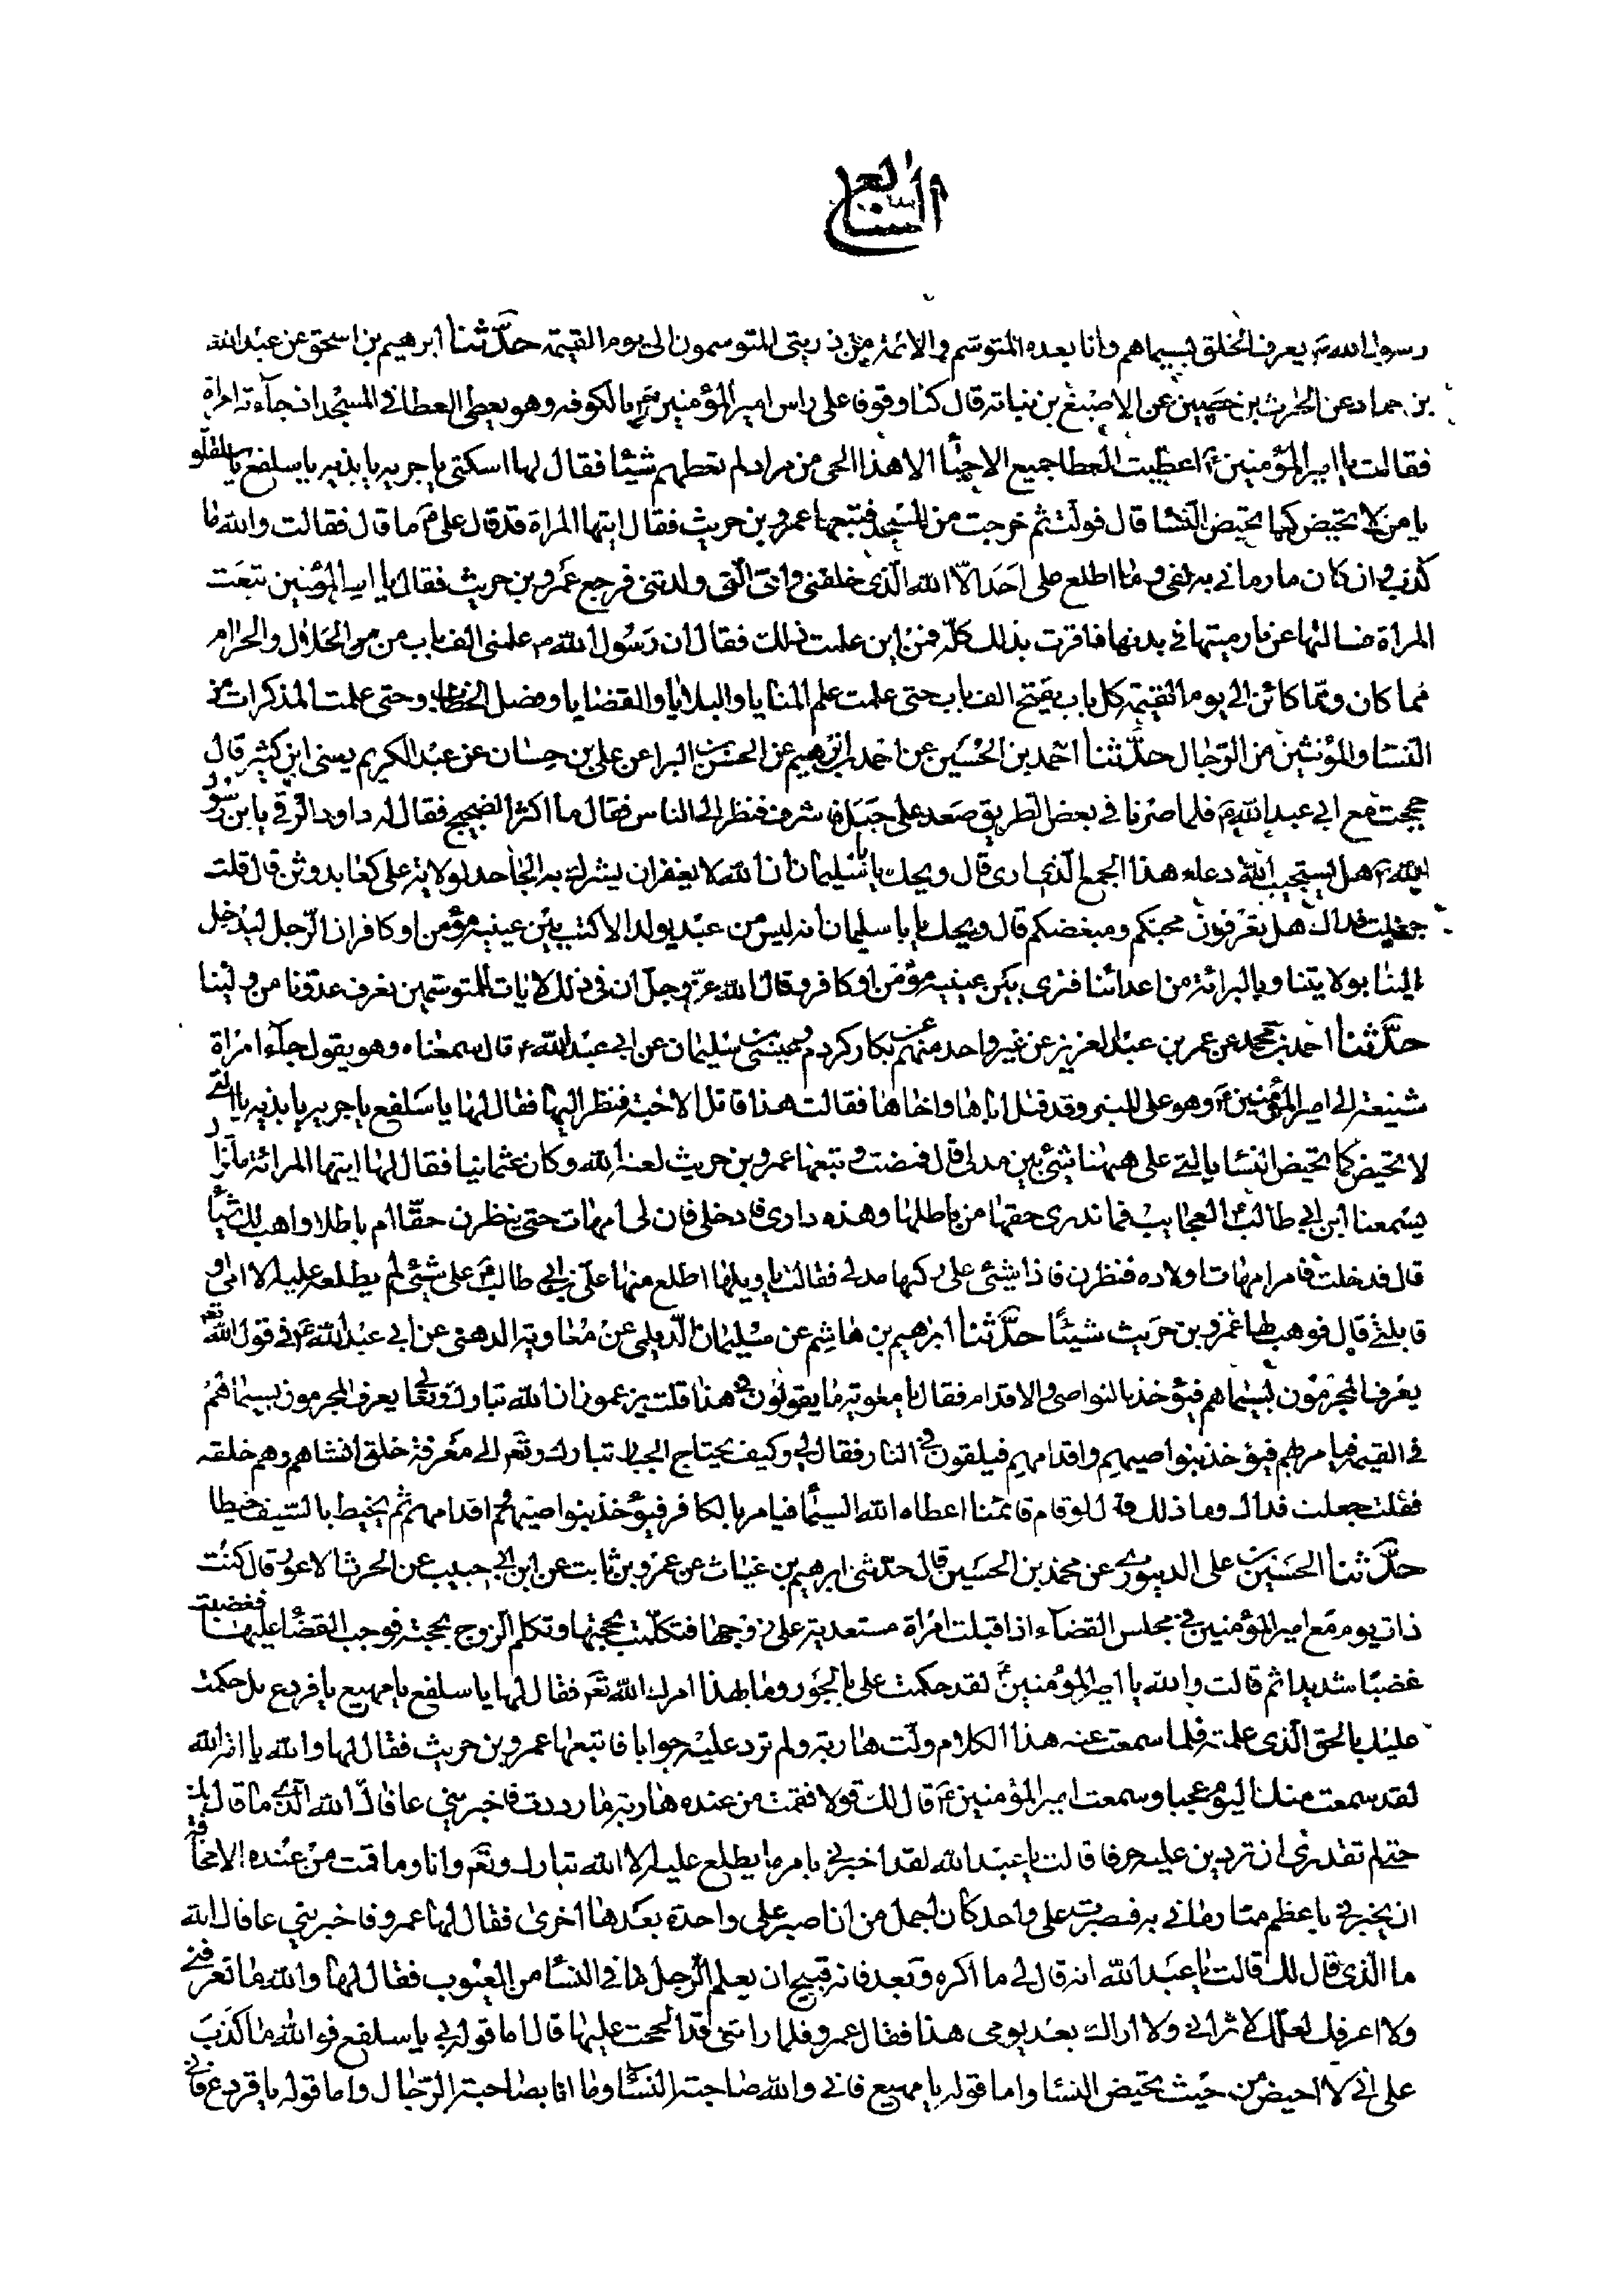 السابع
رسول الله ص يعرف الخلق بسيماهم وانا بعده المتوسم والائمة من ذريتى المتوسمون الى يوم القيمة حدثنا ابرهيم بن اسحق عن عبد الله
بن حماد عن الحرث بن حصين عن الاصبغ بن نباتة قال كنا وقوفا على راس امير المؤمنين ع بالكوفه وهو يعطى العطا فى المسجد اذ جآءته امراة
فقالت يا امير المؤمنين ع اعطيت العطا جميع الاحيآ الا هذا الحى من مراد لم تعطهم شيئا فقال لها اسكتى يا جريه يا بذيه يا سلفع يا سلقلق
يا من لا تحيض كما تحيض النسا قال فولت ثم خرجت من المسجد فتبعها عمرو بن حريث فقال ايتها المراة قد قال على ع ما قال فقالت والله ما
كذب وان كان ما رمانى به لفى وما اطلع على احد الا الله الذى خلقنى وامى التى ولدتنى فرجع عمرو بن حريث فقال يا امير المؤمنين تبعت
المراة فسالتها عن ما رميتها فى بدنها فاقرت بذلك كله فمن اين علمت ذلك فقال ان رسول الله ص علمنى الف باب من من الحلال والحرام
مما كان ومما كائن الى يوم القيمة كل باب يفتح الف باب حتى علمت علم المنايا والبلايا والقضايا وفصل الخطاب وحتى علمت المذكرات من
النسا والمؤنثين من الرجال حدثنا احمد بن الحسين عن احمد بن ابرهيم عن الحسن بن البرا عن على بن حسان عن عبد الكريم يعنى ابن كثير قال
حججت مع ابى عبد الله ع فلما صرنا فى بعض الطريق صعد على جبل فاشرف فنظر الى الناس فقال ما اكثر الضجيج فقال له داود الرقى يا بن رسول
الله ص هل يستجيب الله دعاء هذا الجمع الذى ارى قال ويحك يا با سليمان ان الله لا يغفر ان يشرك به الجاحد لولاية على كعابد وثن قال قلت
جعلت فداك هل تعرفون محبكم ومبغضكم قال ويحك يا با سليمان انه ليس من عبد يولد الا كتب بين عينيه مؤمن او كافر ان الرجل ليدخل
الينا بولايتنا وبالبرائة من اعدائنا فنرى بين عينيه مؤمن او كافر وقال الله عز وجل ان فى ذلك لايات للمتوسمين نعرف عدونا من ولينا
حدثنا احمد بن محمد عن عمر بن عبد العزيز عن غير واحد منهم عن بكار كردم وعيسى بن سليمان عن ابى عبد الله ع قال سمعناه وهو يقول جآء امراة
شنيعة الى امير المؤمنين ع وهو على المنبر وقد قتل اباها واخاها فقالت هذا قاتل الاحبة فنظر اليها فقال لها يا سلفع يا جريه يا بذيه يا التى
لا تحيض كما تحيض النسا يا التى على هنها شئ بين مدلى قال فمضت وتبعها عمرو بن حريث لعنه الله وكان عثمانيا فقال لها ايتها المرائة ما يزال
يسمعنا ابن ابى طالب العجايب فما ندرى حقها من باطلها وهذه دارى فادخلى فان لى امهات حتى ينظرن حقا ام باطلا واهب لك شيئا
قال فدخلت فامر امهات اولاده فنظرن فاذا شئ على ركبها مدلى فقالت يا ويلها اطلع منها على بن ابى طالب ع على شئ لم يطلع عليه الا امى او
قابلتى قال فوهب لها عمرو بن حريث شيئا حدثنا ابرهيم بن هاشم عن سليمان الديلمى عن معاوية الدهنى عن ابى عبد الله ع فى قول الله تع
يعرف المجرمون بسيماهم فيؤخذ بالنواصى والاقدام فقال يا معوية ما يقولون فى هذا قلت يزعمون ان الله تبارك وتعالى يعرف المجرمون بسيماهم
فى القيمة فيامر بهم فيؤخذ بنواصيهم واقدامهم فيلقون فى النار فقال لى وكيف يحتاج الجبار تبارك وتع الى معرفة خلق انشاهم وهم خلقه
فقلت جعلت فداك وما ذلك قال لو قام قائمنا اعطاه الله السيما فيامر بالكافر فيؤخذ بنواصيهم واقدامهم ثم يخبط بالسيف خبطا
حدثنا الحسين بن على الدينورى عن محمد بن الحسين قال حدثنى ابرهيم بن غياث عن عمرو بن ثابت عن ابن ابى حبيب عن الحرث الاعور قال كنت
ذات يوم مع امير المؤمنين فى مجلس القضآء اذ اقبلت امراة مستعدية على زوجها فتكلمت بحجتها وتكلم الزوج بحجته فوجب القضا عليها فغضبت
غضبا شديدا ثم قالت والله يا امير المؤمنين ع لقد حكمت على بالجور وما بهذا امرك الله تع فقال لها يا سلفع يا مهيع يا قردع بل حكمت
عليك بالحق الذى علمته فلما سمعت عنه هذا الكلام ولت هاربة ولم ترد عليه جوابا فاتبعها عمرو بن حريث فقال لها والله يا امة الله
لقد سمعت منك اليوم عجبا وسمعت امير المؤمنين ع قال لك قولا فقمت من عنده هاربة ما رددت فاخبرينى عافاك الله الذى ما قال لك
حتى لم تقدرى ان تردين عليه حرفا قالت يا عبد الله لقد اخبرنى بامر ما يطلع عليه الا الله تبارك وتع وانا وما قمت من عنده الا مخافة
ان يخبرنى باعظم مما رمانى به فصبرت على واحد كان اجمل من ان اصبر على واحدة بعدها اخرى فقال لها عمرو فاخبرينى عافاك الله
ما الذى قال لك قالت يا عبد الله انه قال لى ما اكره وبعد فانه قبيح ان يعلم الرجل ما فى النسا من العيوب فقال لها والله ما تعرفنى
ولا اعرفك لعلك لا ترانى ولا اراك بعد يومى هذا فقال عمرو فلما راتنى قد الححت عليها قالت اما قوله لى يا سلفع فوالله ما كذب
على انى لا احيض من حيث تحيض النسا واما قوله يا مهيع فانى والله صاحبة النسا وما انا بصاحبة الرجال واما قوله يا قردع فانى